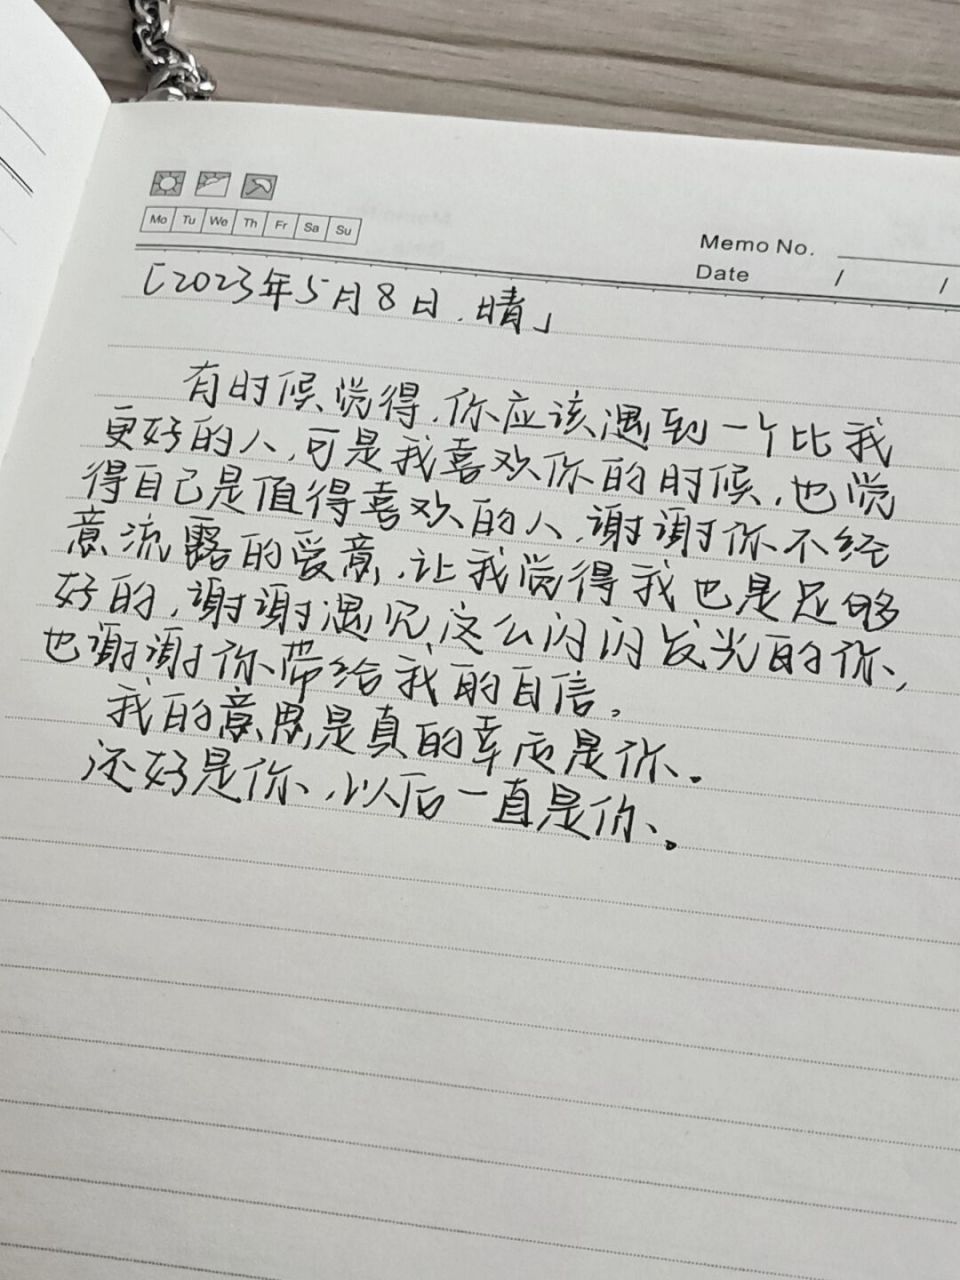 Mo Tu We Th Fr Sa Su
Memo No.
Date / /
「2023年5月8日.晴」
有时候觉得,你应该遇到一个比我
更好的人,可是我喜欢你的时候,也觉
得自己是值得喜欢的人,谢谢你不经
意流露的爱意,让我觉得我也是足够
好的,谢谢遇见这么闪闪发光的你,
也谢谢你带给我的自信。
我的意思是真的幸应是你。
还好是你,以后一直是你。